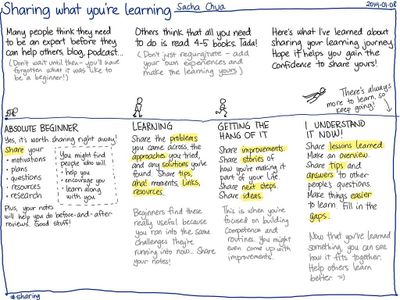 Sharing what you're learning
Sacha Chua
2014-01-08
Many people think they need
to be an expert before they
can help others, blog, podcast...
(Don't wait until then - you'll have
forgotten what it was like to
be a beginner!)
Others think that all you need
to do is read 4-5 books. Tada!
(Don't just regurgitate - add
your own experiences and
make the learning yours)
Here's what I've learned about
sharing your learning journey.
Hope it helps you gain the
confidence to share yours!
There's always
more to learn, so
keep going!
ABSOLUTE BEGINNER
Yes, it's worth sharing right away!
Share your
• motivations
• plans
• questions
• resources
• research
You might find
people who can
• help you
• encourage you
• learn along
with you
Plus, your notes
will help you do before-and-after
reviews. Good stuff!
LEARNING
Share the problems
you came across, the
approaches you tried,
and any solutions you've
found. Share tips,
aha! moments, links,
resources.
Beginners find these
really useful because
you run into the same
challenges they're
running into now... Share
your notes!
GETTING THE
HANG OF IT
Share improvements.
Share stories of
how you're making it
part of your life
Share next steps.
Share ideas.
This is when you're
focused on building
competence and
routines. You might
even come up with
improvements!
I UNDERSTAND
IT NOW!
Share lessons learned
Make an overview.
Share tips and
answers to other
people's questions.
Make things easier
to learn. Fill in the
gaps.
Now that you've learned
something, you can see
how it fits together.
Help others learn
better. =)
#sharing